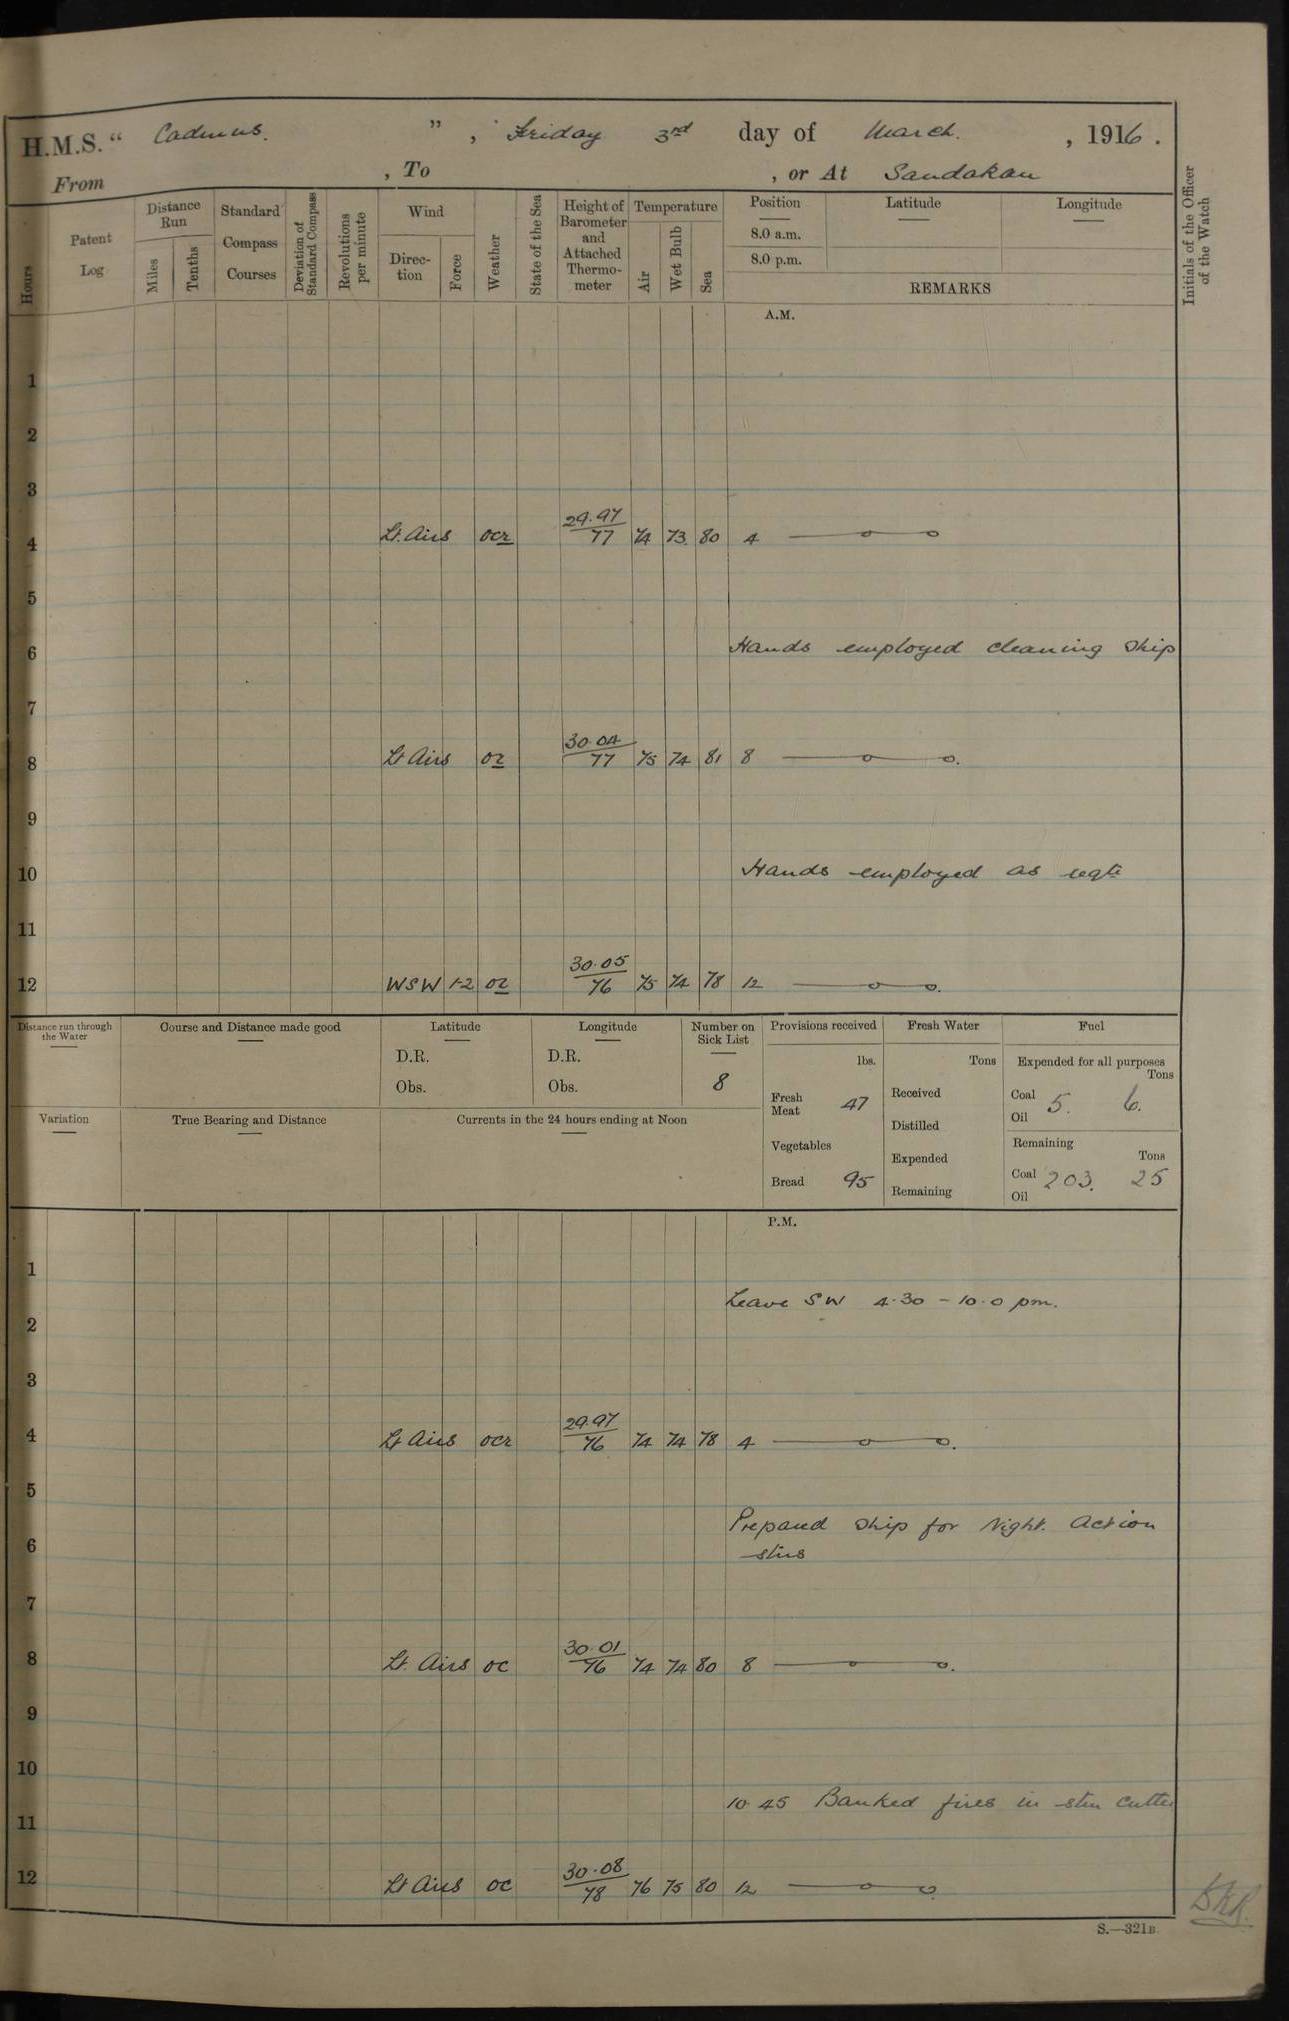 H.M.S. " Cadmus. " , Friday 3rd day of March. , 1916.
From , To , or At Sandakan
Hours
Patent Log
Distance Run
Miles
Tenths
Standard Compass Courses
Deviation of Standard Compass
Revolutions per minute
Wind
Direction
Force
Weather
State of the Sea
Height of Barometer and Attached Thermometer
Temperature
Air
Wet Bulb
Sea
Position
8.0 a.m.
8.0 p.m.
Latitude
Longitude
REMARKS
Initials of the Officer of the Watch
A.M.
1
2
3
4 Lt. Airs ocr 29.97/77 74 73 80 4
5
6 Hands employed cleaning ship
7
8 Lt Airs or 30.04/77 75 74 81 8
9
10 Hands employed as reqte
11
12 WSW 1-2 or 30.05/76 75 74 78 12
Distance run through the Water
Course and Distance made good
Latitude
D.R.
Obs.
Longitude
D.R.
Obs.
Number on Sick List
8
Provisions received
lbs.
Fresh Meat 47
Vegetables
Bread 95
Fresh Water
Tons
Received
Distilled
Expended
Remaining
Fuel
Expended for all purposes
Tons
Coal 5. 6.
Oil
Remaining
Tons
Coal 203. 25
Oil
Variation
True Bearing and Distance
Currents in the 24 hours ending at Noon
P.M.
1
Leave SW 4.30 - 10.0 pm.
2
3
4 Lt Airs ocr 29.97/76 74 74 78 4
5
Prepared ship for Night. Action
6 stns
7
8 Lt. Airs oc 30.01/76 74 74 80 8
9
10
10.45 Banked fires in stm Cutter
11
12 Lt Airs oc 30.08/78 76 75 80 12
S.—321B.